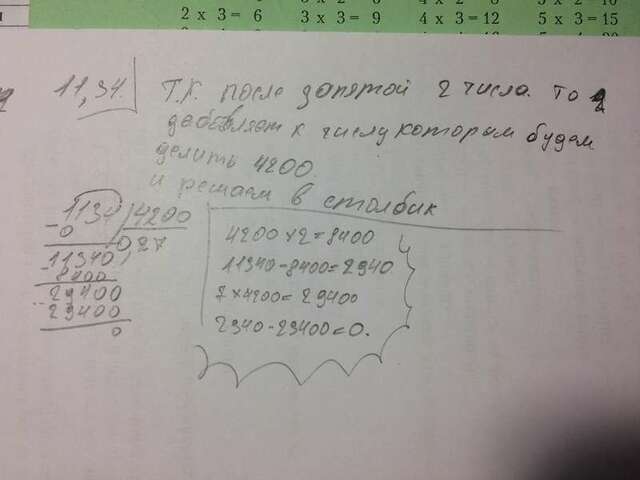 2 x 3 = 6 3 x 3 = 9 4 x 3 = 12 5 x 3 = 15
11,34.
Т.К. после запятой 2 числа. то
добовляем к числу которым будем
делить 4200.
и решаем в столбик
1134 4200
-0 0,27
11340
-8400
29400
29400
0
4200 x 2 = 8400
11340 - 8400 = 2940
7 x 4200 = 29400
2940 - 29400 = 0.